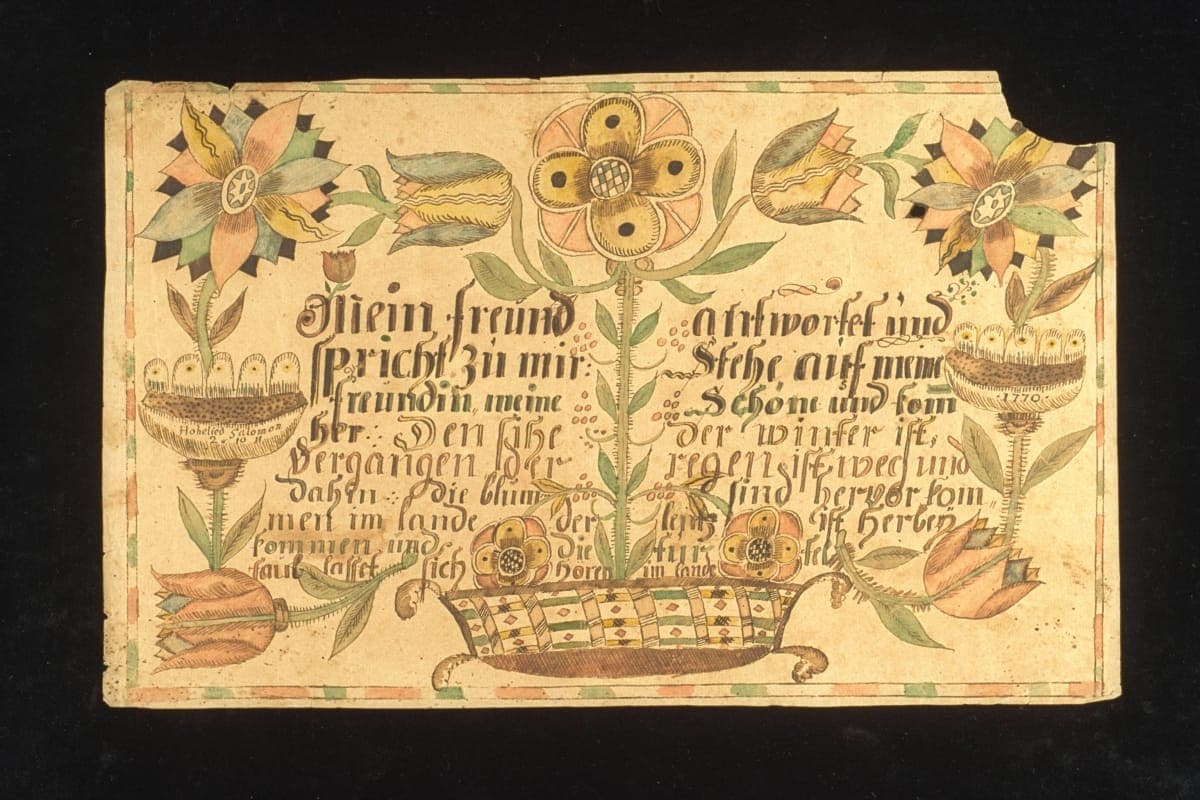 Mein freund antwortet und
spricht zu mir: Stehe auf meine
freundin, meine Schöne und kom̅
her: Den sihe der winter ist,
Vergangen der regen ist weg und
dahin: die blum sind hervor kom=
men im lande der lentz ist herbeÿ
kommen und die turtel
taub lasset sich hören im lande
Hohelied Salomon
2. 10. 11
1770.